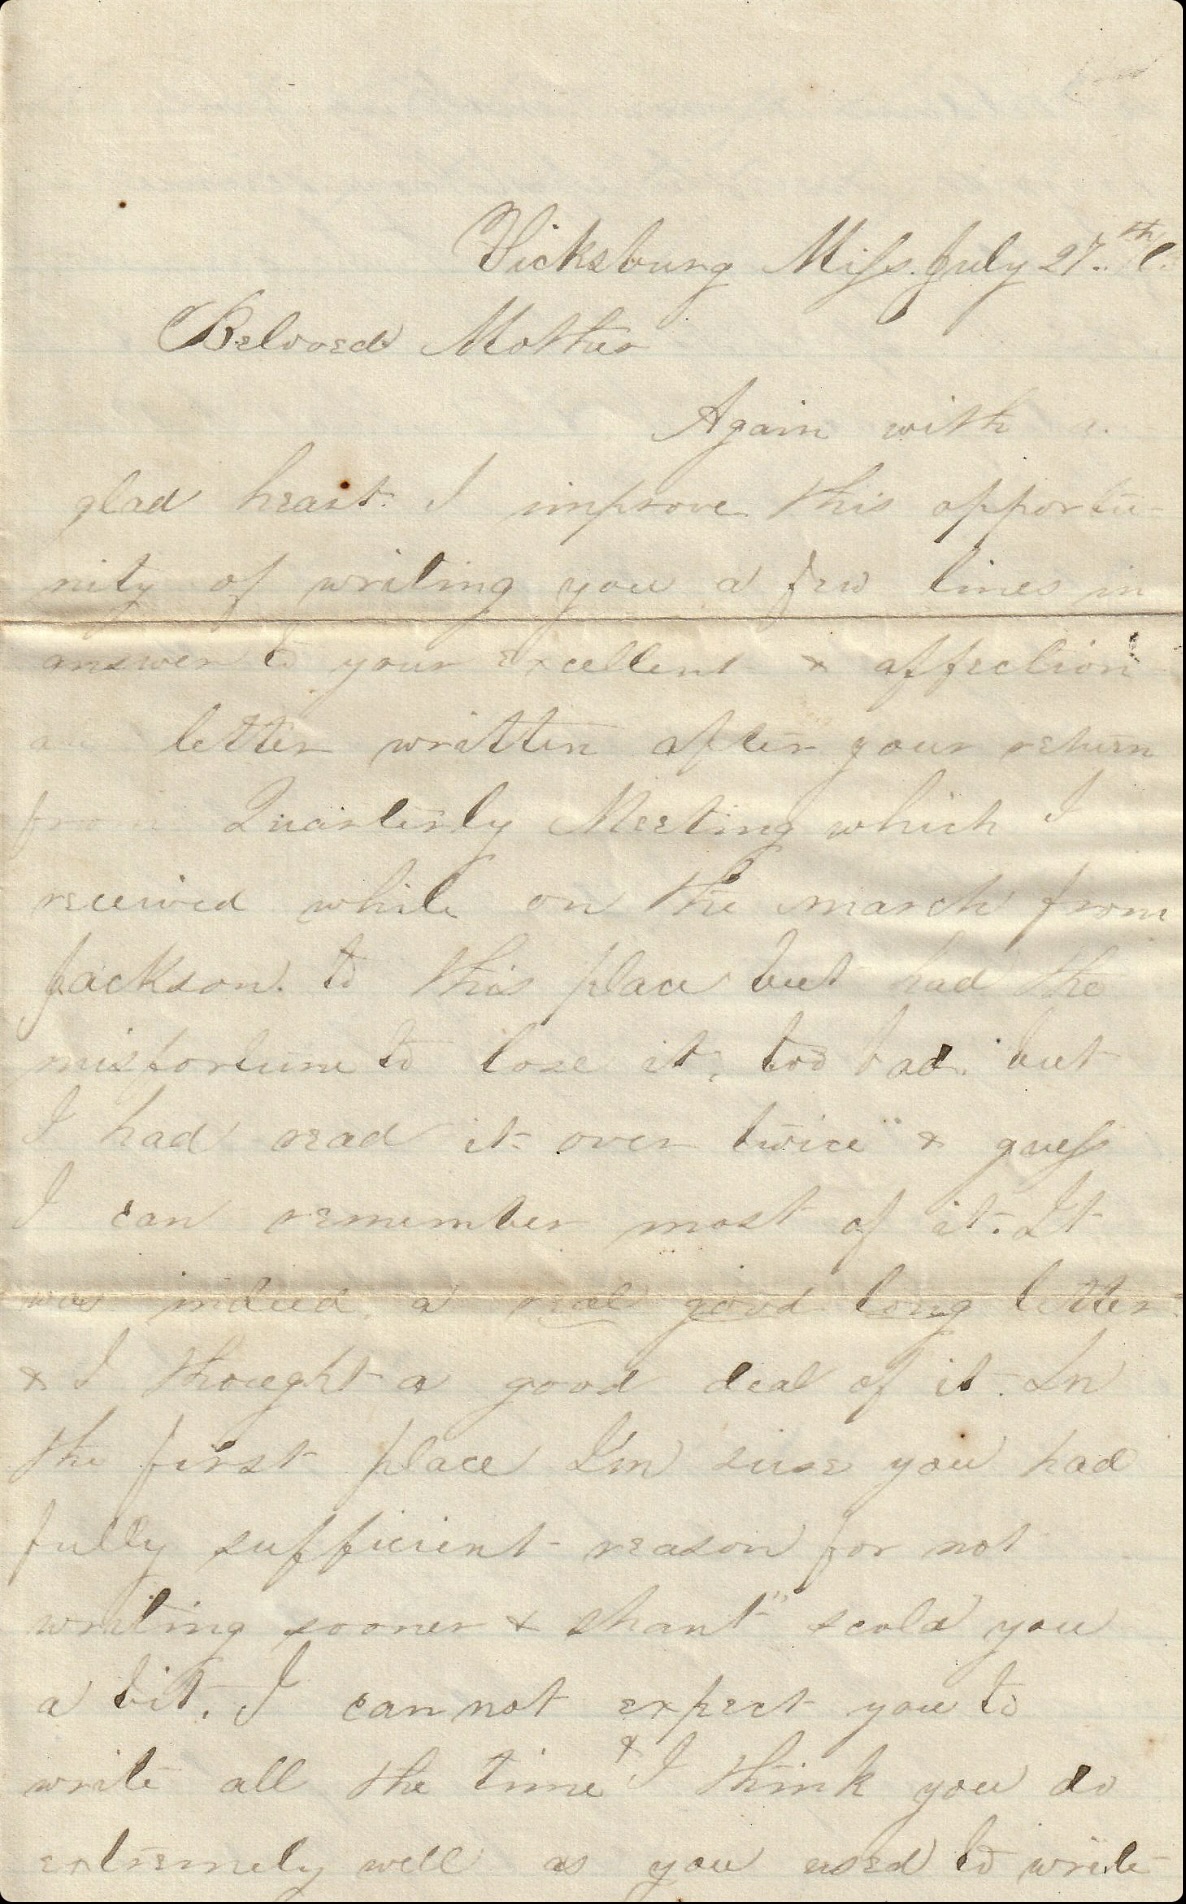 Vicksburg Miss. July 27.th
Beloved Mother
Again with a
glad heart I improve this opportu-
nity of writing you a few lines in
answer to your excellent & affection
ate letter written after your return
from Quarterly Meeting which I
received while on the march from
Jackson. to this place but had the
misfortune to lose it, too bad. but
I had read it over twice" & guess
I can remember most of it. It
was indeed, a real good long letter
& I thought a good deal of it. In
the first place I'm sure you had
fully sufficient reason for not
writing sooner & shant" scold you
a bit. I can not expect you to
write all the time & I think you do
extremely well as you used to write